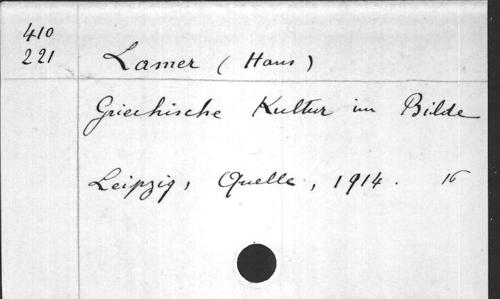 410
221 Lamer (Hans)
Griechische Kultur im Bilde
Leipzig, Quelle, 1914. 16